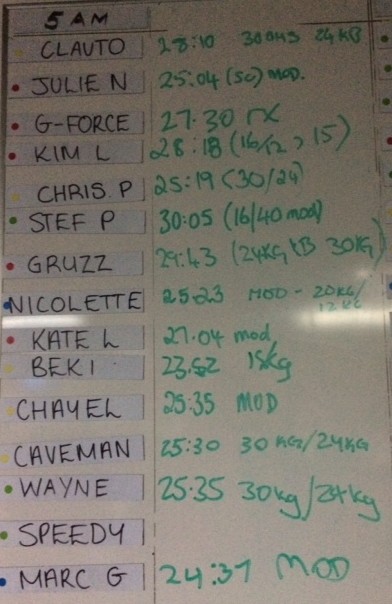 5 AM
CLAUTO 28:10 24KB
JULIE N 25:04 (50) MOD.
G-FORCE 27:30 rx
KIM L 28:18 (16/12, 15)
CHRIS P 25:19 (30/24)
STEF P 30:05 (16/40 mod)
GRUZZ 29:43 (24KG KB 30KG)
NICOLETTE 25:23 MOD - 20KG/
12KG
KATE L 27.04 mod
BEKI 23.52 15kg
CHAYEL 25:35 MOD
CAVEMAN 25:30 30KG/24KG
WAYNE 25:35 30kg/24kg
SPEEDY
MARC G 24:37 MOD